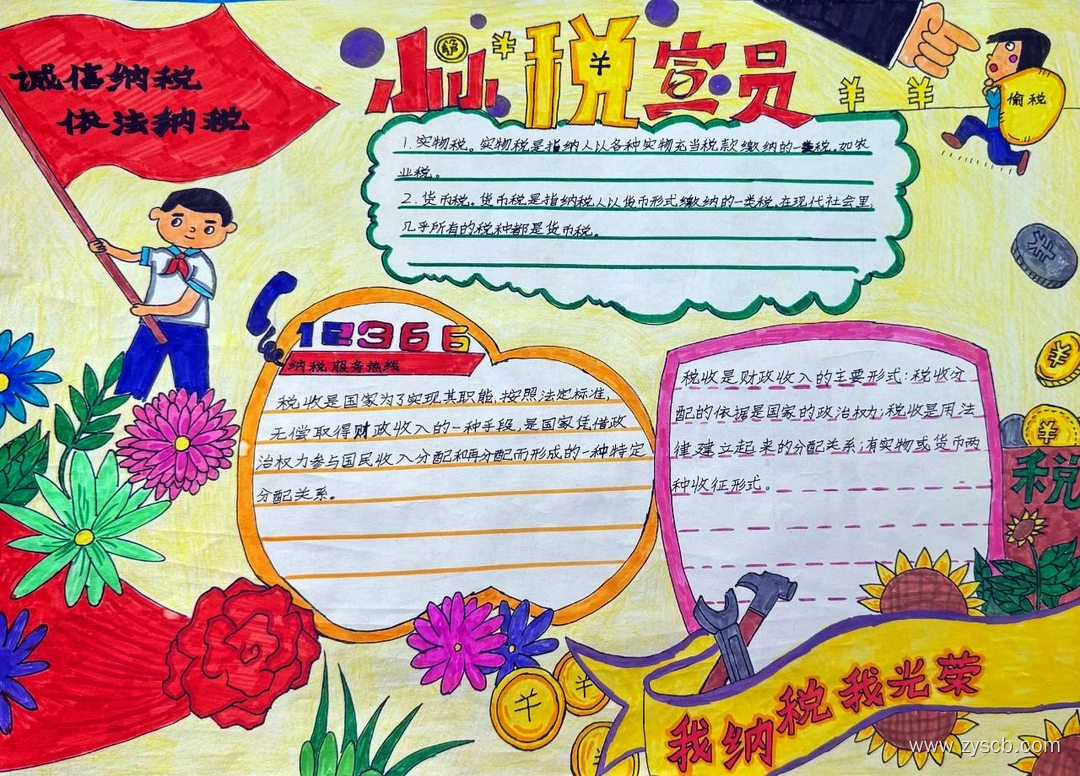 诚信纳税
依法纳税
小小税宣员
偷税
1.实物税。实物税是指纳人以各种实物充当税款缴纳的一类税,如农
业税。
2.货币税。货币税是指纳税人以货币形式缴纳的一类税,在现代社会里,
几乎所有的税种都是货币税。
12366
纳税服务热线
税收是国家为了实现其职能,按照法定标准,
无偿取得财政收入的一种手段,是国家凭借政
治权力参与国民收入分配和再分配而形成的一种特定
分配关系。
税收是财政收入的主要形式:税收分
配的依据是国家的政治权力;税收是用法
律建立起来的分配关系;有实物或货币两
种收征形式。
税
我纳税我光荣
www.zyscb.com